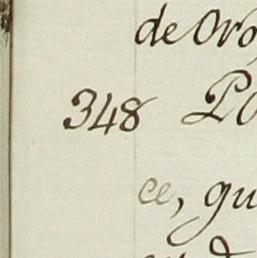 de Oro
348 Po
ce, qu